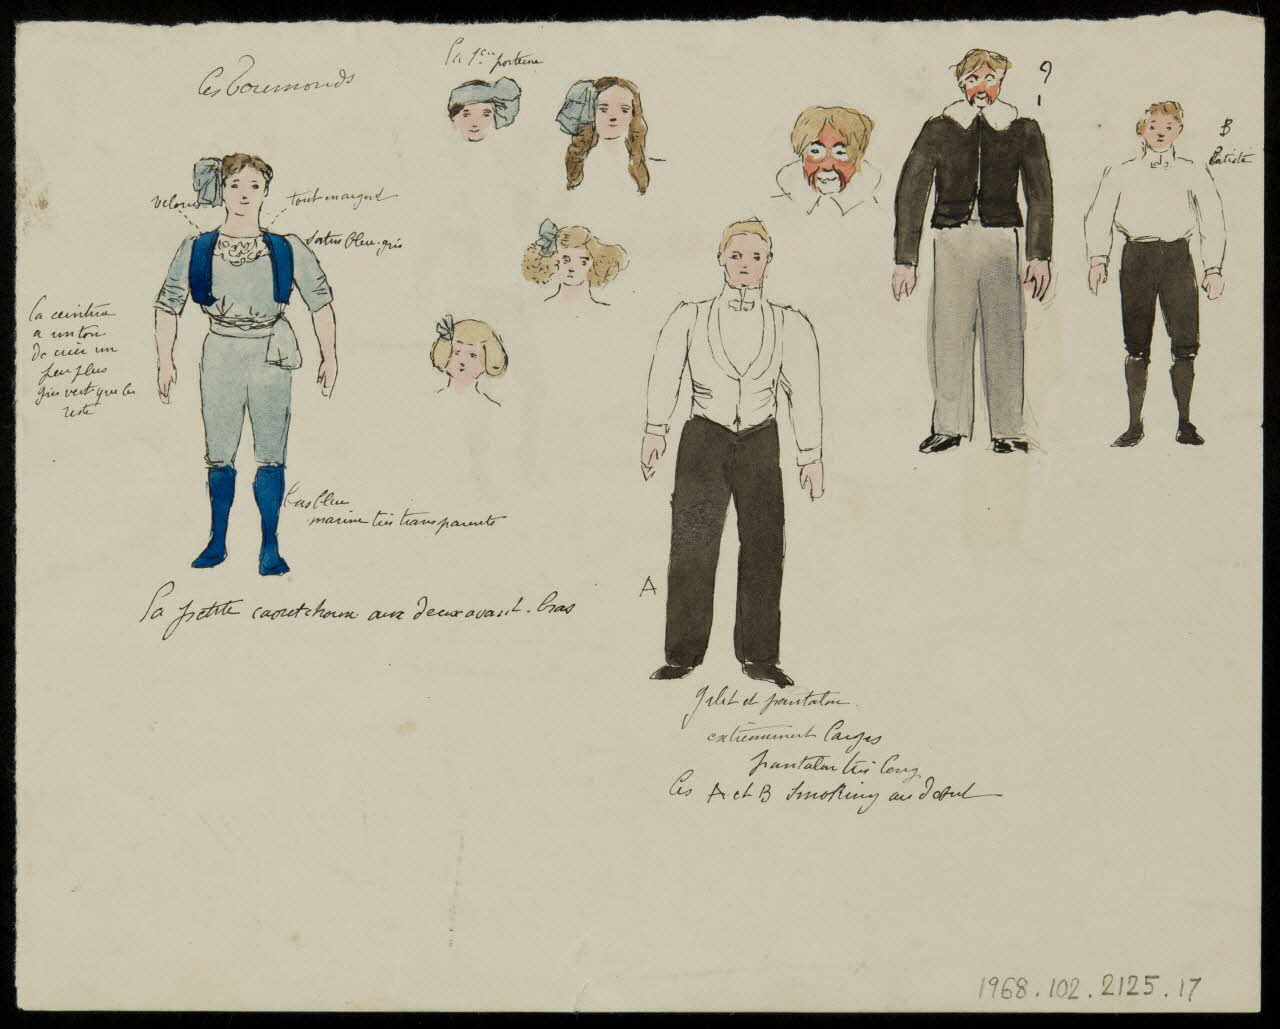 Les Toumonds
La 1ère porteuse
velours
tout en argent
Satin bleu-gris
La ceinture
a un ton
de cuir un
peu plus
gris vert que le
reste
bas bleu
marine très transparents
La petite caoutchouc aux deux avant-bras
?
B
Batiste
A
gilet et pantalon
extrêmement larges
pantalon très long
Les A et B smoking au début
1968.102.2125.17